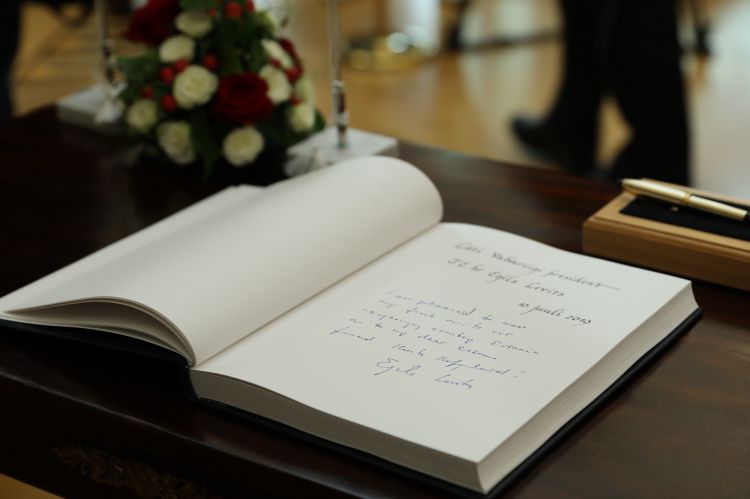 Läti Vabariigi president
T.E. hr Egils Levits
10. juuli 2019
I am pleased to
my first visit to our
country Estonia
as to my dear Estonia
friend
Egils Levits